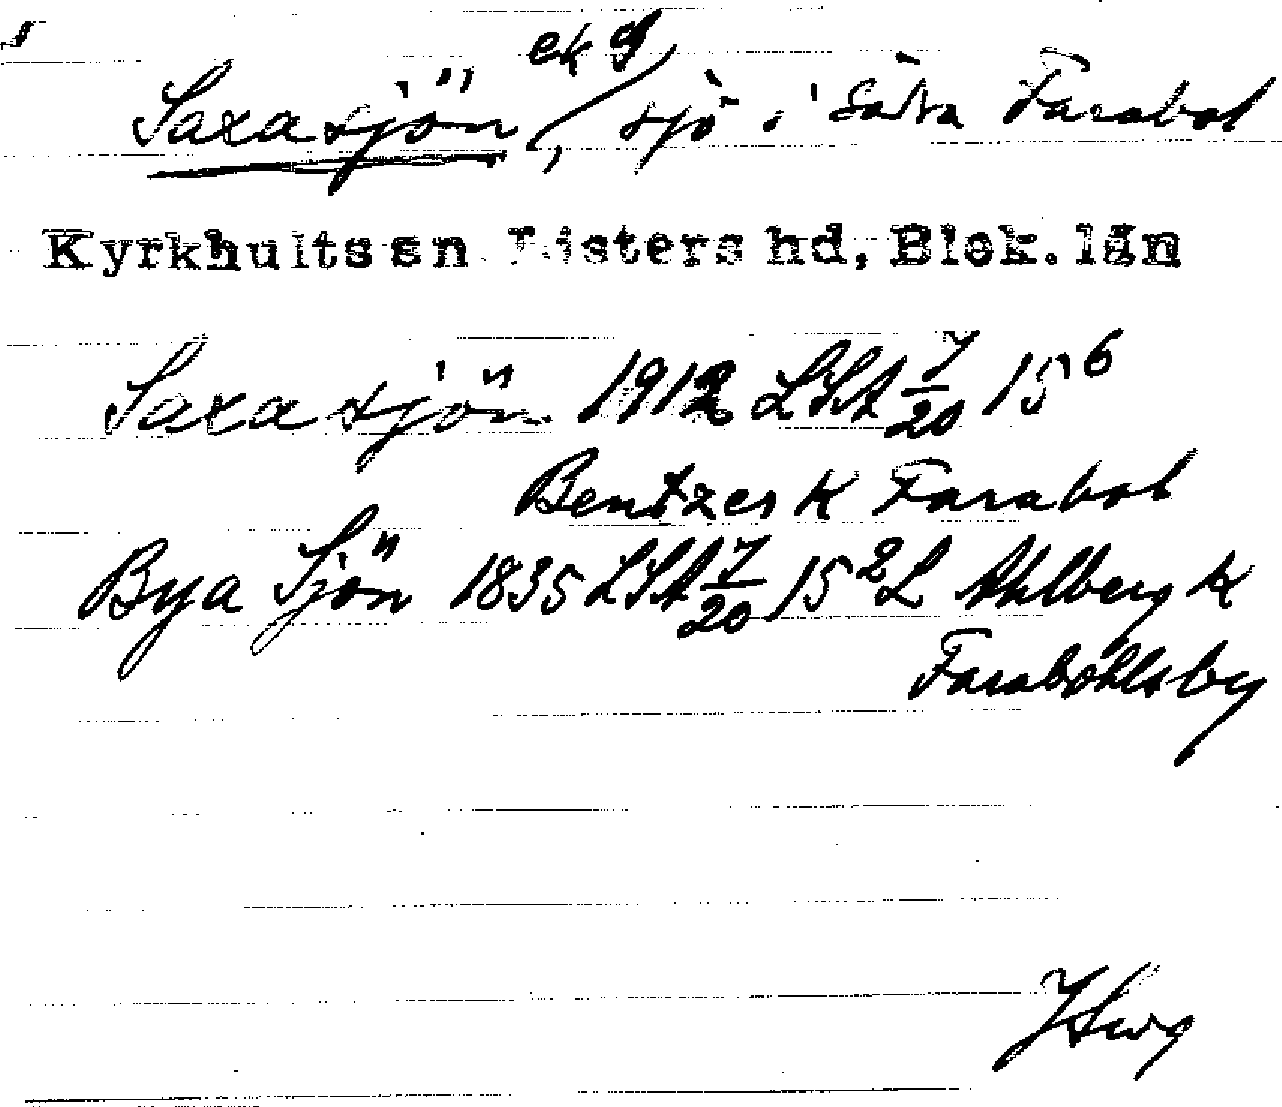 ek 9
Saxasjön, sjö i Södra Farabol
Kyrkhults sn Listers hd, Blek. län
Saxasjön 1912 LSA 7/20 15⁶
Bentzer K Farabol
Bya Sjön 1835 LSA 7/20 15² L Ahlberg K
Faraböhlsby